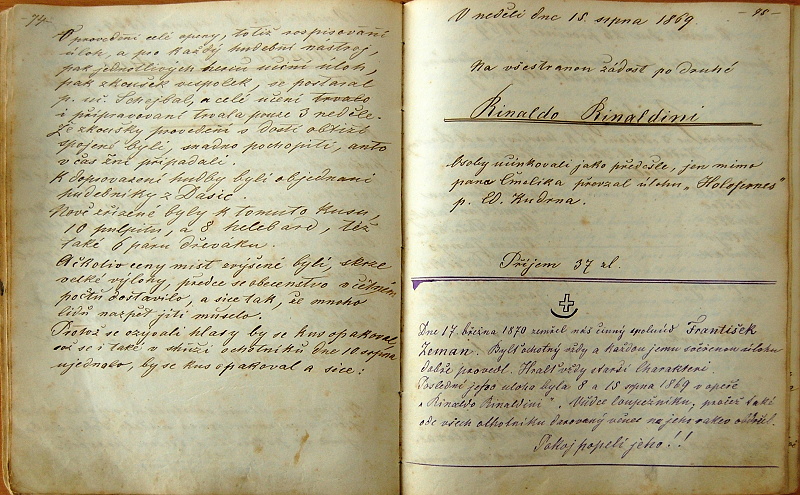 -74-
O provedení celé opery, totiž rozpisování
úloh, a pro každý hudební nástroj,
pak jednotlivých herců učení úloh,
pak zkoušek vespolek, se postaral
p. uč. Schejbal, a celé učení trvalo
i připravování trvala pouze 3 neděle.
Že zkoušky provedení s dosti obtíží
spojené byli, snadno pochopiti, anto
v čas žně připadali.
K doprovození hudby byli objednaní
hudebníky z Dašic.
Nově zřízené byly k tomuto kusu,
10 pulpitů, a 8 helebard, též
také 6 párů dřeváku.
Ačkoliv ceny míst zvýšené byli, skrze
velké výlohy, předce se obecenstvo v četném
počtu dostavilo, a sice tak, že mnoho
lidů nazpět jíti muselo.
Protož se ozývali hlasy by se kus opakoval,
což se i také v schůzi ochotníků dne 10 srpna
ujednalo, by se kus opakoval a sice:
V neděli dne 15. srpna 1869
Na všestranou žádost po druhé
Rinaldo Rinaldini
Osoby účinkovali jako předešle, jen mimo
pana Čmolíka převzal úlohu „Holofernes"
p. Ed. Kudrna.
Příjem 37 zl.
Dne 17. března 1870 zemřel náš činný spoluúd František
Zeman. Byltˇ ochotný vždy a každou jemu svěřenou úlohu
dobře provedl. Hrálť vždy starší Charaktery.
Poslední jeho úloha byla 8 a 15 srpna 1869 v opeře
„Rinaldo Rinaldini". Vůdce loupežníku, pročež také
ode všech ochotníku darovaný věnec na jeho rakev obdržel.
Pokoj popeli jeho!!